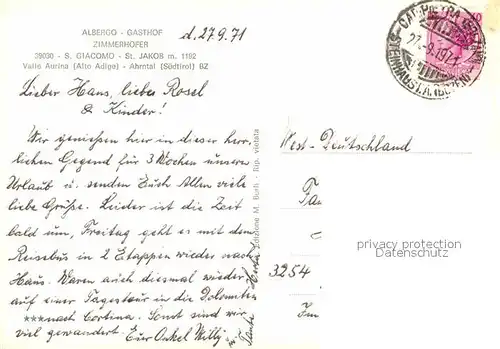 ALBERGO - GASTHOF
ZIMMERHOFER
39030 - S. GIACOMO - St. JAKOB m. 1192
Valle Aurina (Alto Adige) - Ahrntal (Südtirol) BZ
d. 27.9.71
Lieber Hans, liebes Rosel
& Kinder!
Wir genießen hier in dieser herr-
lichen Gegend für 3 Wochen unseren
Urlaub u. senden Euch Allen viele
liebe Grüße. Leider ist die Zeit
bald um, Freitag geht es mit dem
Reisebus in 2 Etappen wieder nach
Haus. Waren auch diesmal wieder
auf einer Tagestour in die Dolomiten
***nach Cortina. Sonst sind wir
viel gewandert. Euer Onkel Willy
Tante Herta
Edizione M. Busti - Rip. vietata
27.-9.1971
West-Deutschland
3254
privacy protection
Datenschutz